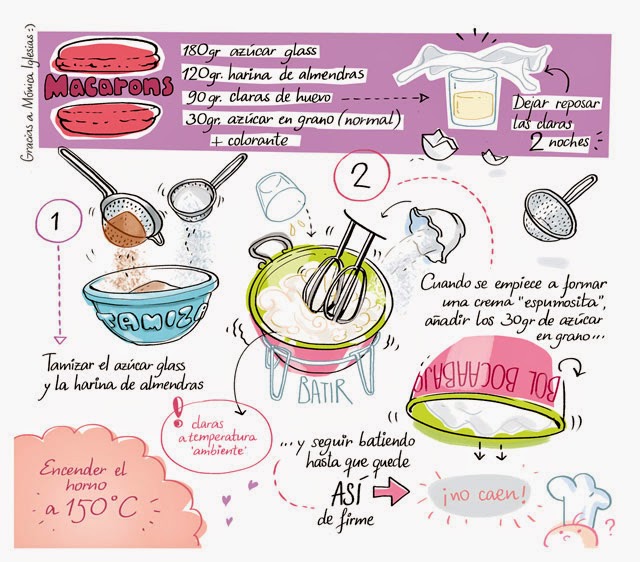 Gracias a Mónica Iglesias :)
Macarons
180gr azúcar glass
120gr. harina de almendras
90 gr. claras de huevo
30gr. azúcar en grano (normal)
+ colorante
Dejar reposar
las claras
2 noches
1
TAMIZA
Tamizar el azúcar glass
y la harina de almendras
2
BATIR
Cuando se empiece a formar
una crema "espumosita",
añadir los 30gr de azúcar
en grano...
! claras
a temperatura
'ambiente'
BOL BOCAABAJO
... y seguir batiendo
hasta que quede
ASÍ
de firme
¡no caen!
?
Encender el
horno
a 150°C